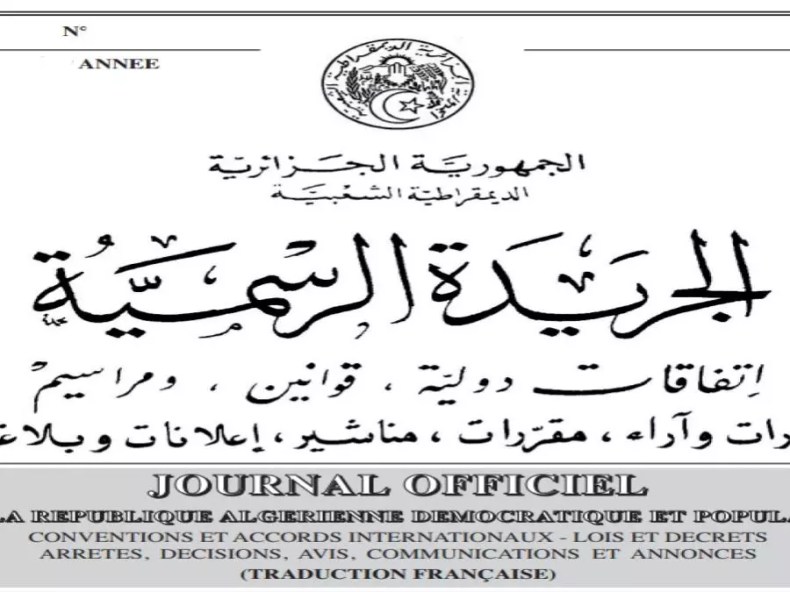 N°
ANNEE
الجمهورية الجزائرية
الديمقراطية الشعبية
الجريدة الرسمية
إتفاقات دولية ، قوانين ، ومراسيم
رات وآراء ، مقررات ، مناشير ، إعلانات وبلاغ
JOURNAL OFFICIEL
LA REPUBLIQUE ALGERIENNE DEMOCRATIQUE ET POPULA
CONVENTIONS ET ACCORDS INTERNATIONAUX - LOIS ET DECRETS
ARRETES, DECISIONS, AVIS, COMMUNICATIONS ET ANNONCES
(TRADUCTION FRANÇAISE)